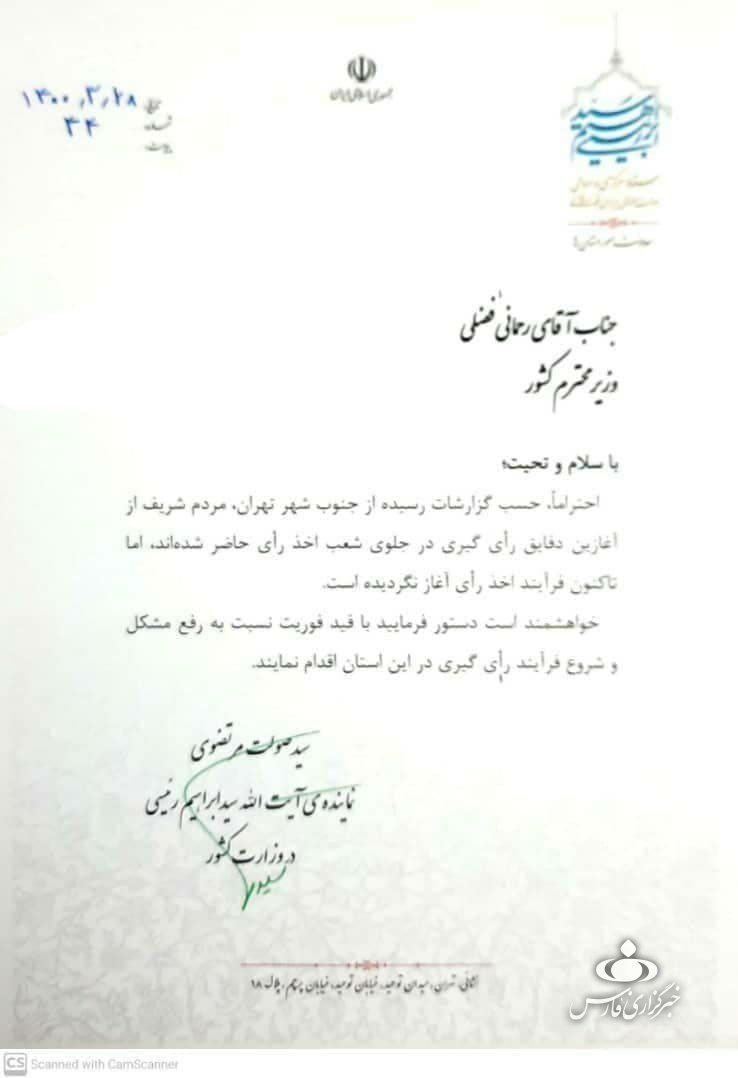 جمهوری اسلامی ایران
تاریخ ۱۴۰۰٫۳٫۲۸
شماره ۳۴
سید ابراهیم رئیسی
جناب آقای رحمانی فضلی
وزیر محترم کشور
با سلام و تحیت؛
احتراماً، حسب گزارشات رسیده از جنوب شهر تهران، مردم شریف از
آغازین دقایق رأی گیری در جلوی شعب اخذ رأی حاضر شده‌اند، اما
تاکنون فرآیند اخذ رأی آغاز نگردیده است.
خواهشمند است دستور فرمایید با قید فوریت نسبت به رفع مشکل
و شروع فرآیند رأی گیری در این استان اقدام نمایند.
سید صولت مرتضوی
نماینده‌ی آیت الله سید ابراهیم رئیسی
در وزارت کشور
نشانی: تهران، میدان توحید، خیابان توحید، خیابان پرچم، پلاک ۱۸
خبرگزاری فارس
CS Scanned with CamScanner